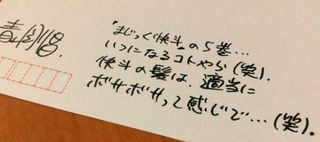 青山剛昌.
"まじっく快斗"の5巻…
いつになるコトやら(笑).
快斗の髪は、適当に
ボサボサって感じで…(笑).